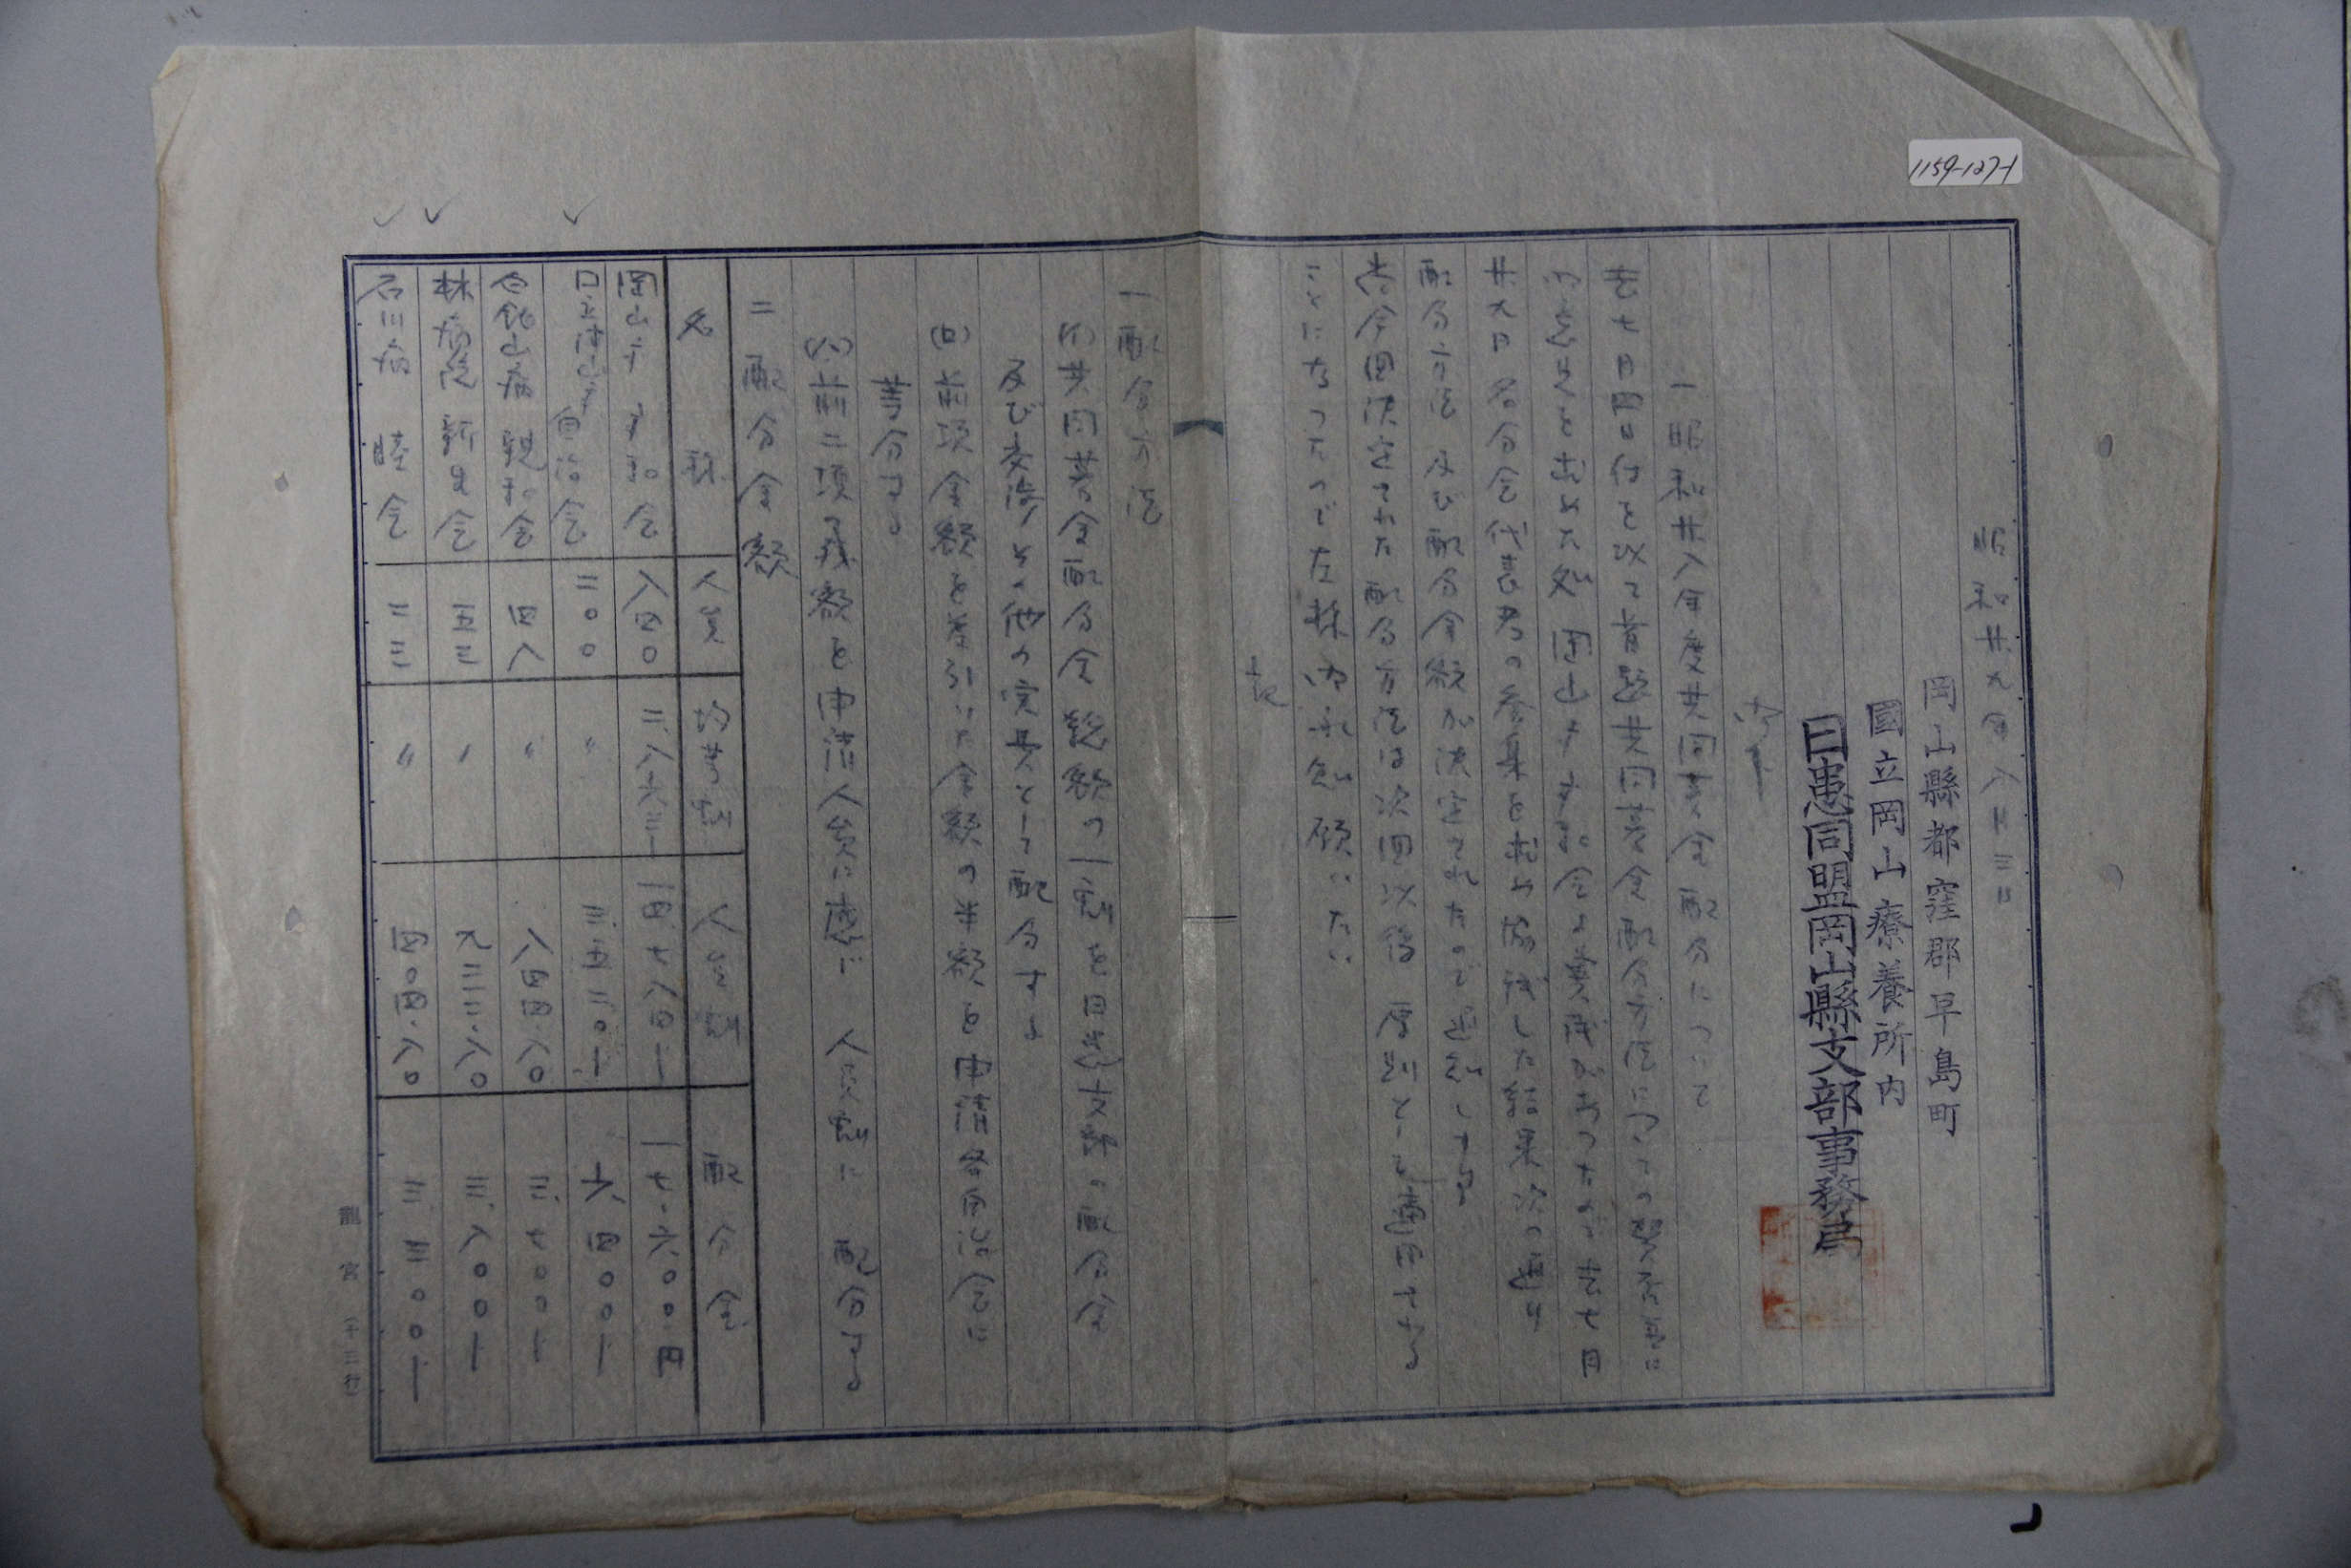 1159-127-1
昭和廿九年八月三日
岡山縣都窪郡早島町
國立岡山療養所内
日患同盟岡山縣支部事務局
一昭和廿八年度共同募金配分について
去七月四日付を以て首題共同募金配分方法についての
廿九日各分会代表者の参集を求め協議した結果次の通り
配分方法及び配分金額が決定されたので通知します
尚今回決定された配分方法は次回以后原則として適用される
ことになつたので左様御承知願いたい
記
一配分方法
(イ)共同募金配分金総額の一割を日患支部の配分金
及び交渉その他の実費として配分する
(ロ)前項金額を差引いた金額の半額を申請各自治会に
等分する
(ハ)前二項の残額を申請人員に應じ人員割に配分する
二配分金額
名称 人員 均等割 人員割 配分金
八四〇 二、八六三ー 一四、七八四ー 一七、六〇〇円
自治会 二〇〇 〃 三、五二〇ー 六、四〇〇ー
四八 〃 八四四・八〇 三、七〇〇ー
林病院 新生会 五三 〃 九三二・八〇 三、八〇〇ー
石川病 睦会 二三 〃 四〇四・八〇 三、三〇〇ー
龍宮(十三行)